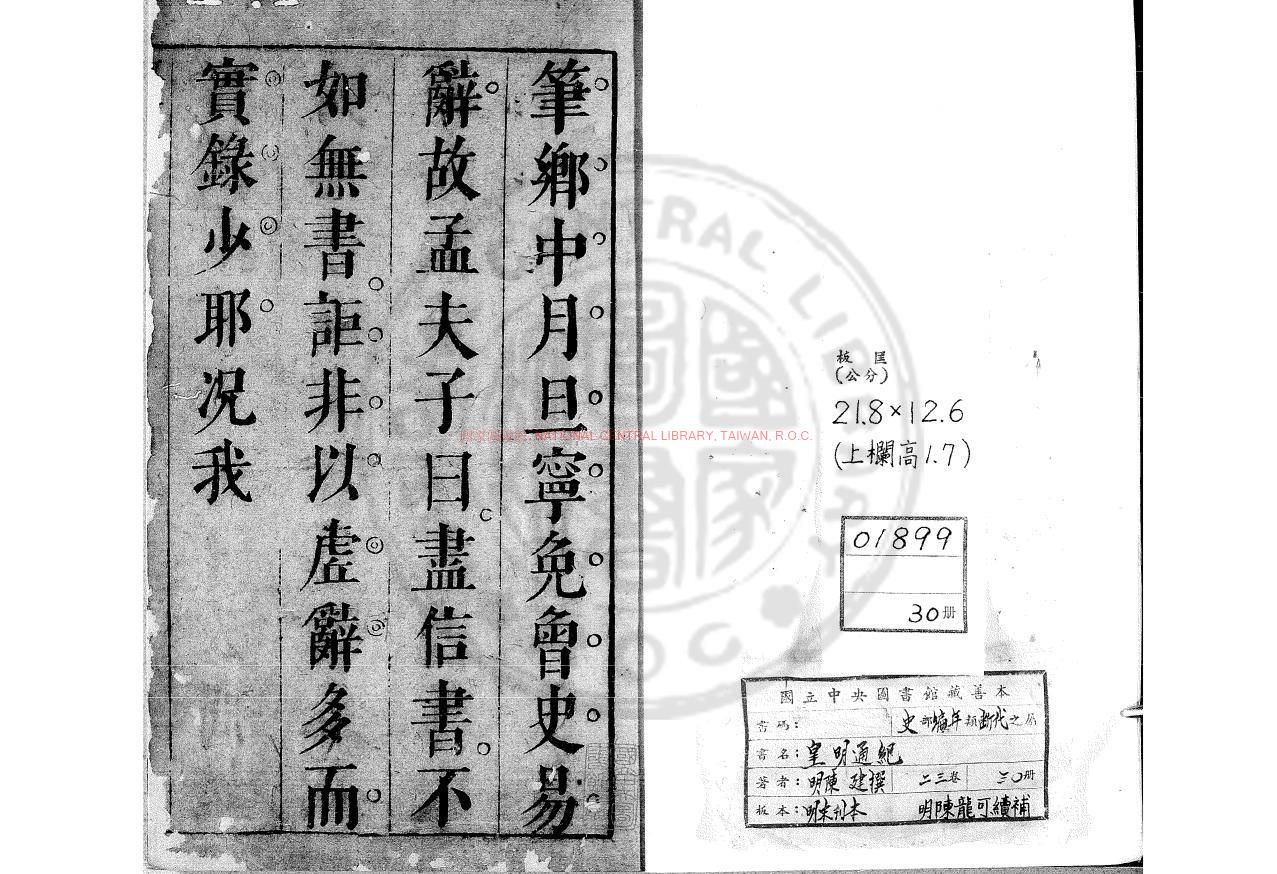 筆鄉中月旦寧免曾史易
辭故孟夫子曰盡信書不
如無書詎非以虛辭多而
實錄少耶况我
板匡
(公分)
21.8×12.6
(上欄高1.7)
01899
30册
國立中央圖書館藏善本
書碼: 史部編年類斷代之屬
書名:皇明通紀
著者:明陳建撰 二三卷 三〇册
板本:明末刊本 明陳龍可續補
國家圖書館, NATIONAL CENTRAL LIBRARY, TAIWAN, R.O.C.